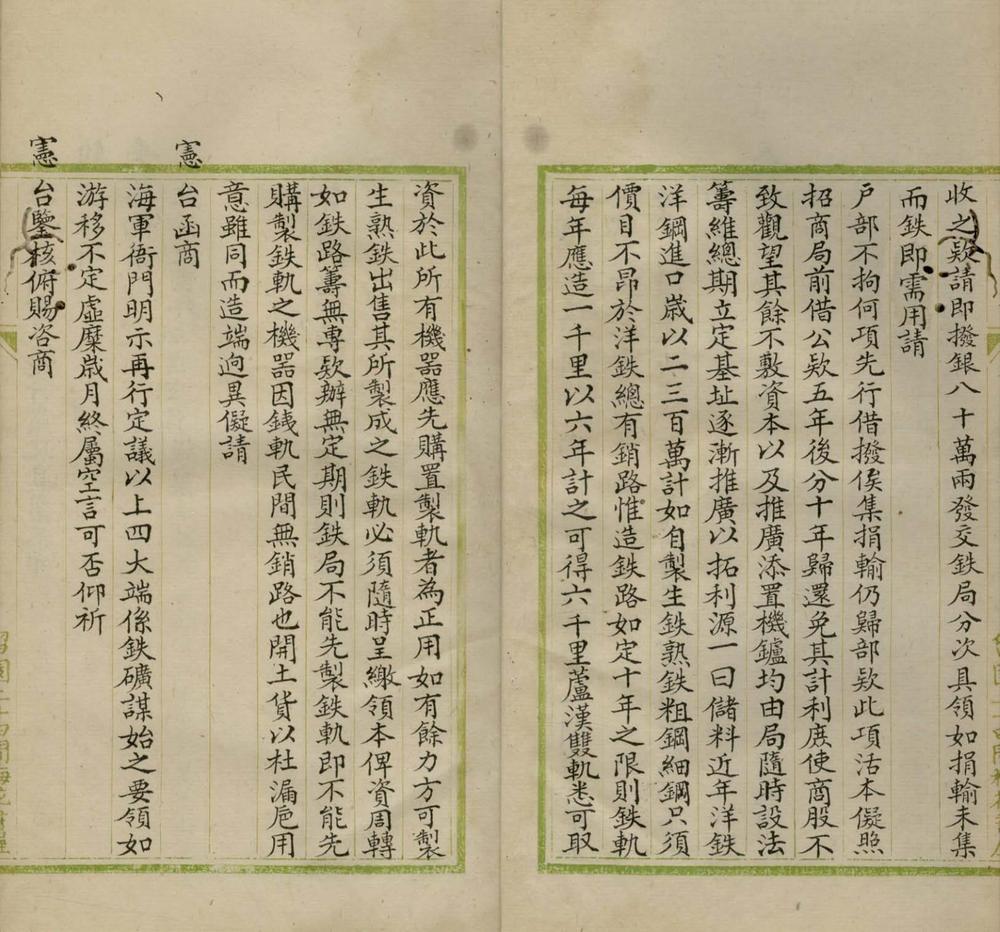 收之欵請即撥銀八十萬兩發交鉄局分次具領如捐輸未集
而鉄即需用請
戶部不拘何項先行借撥俟集捐輸仍歸部欵此項活本儗照
招商局前借公欵五年後分十年歸還免其計利庶使商股不
致觀望其餘不敷資本以及推廣添置機鑪均由局隨時設法
籌維總期立定基址逐漸推廣以拓利源一曰儲料近年洋鉄
洋鋼進口歲以二三百萬計如自製生鉄熟鉄粗鋼細鋼只須
價目不昂於洋鉄總有銷路惟造鉄路如定十年之限則鉄軌
每年應造一千里以六年計之可得六千里蘆漢雙軌悉可取
資於此所有機器應先購置製軌者為正用如有餘力方可製
生熟鉄出售其所製成之鉄軌必須隨時呈繳領本俾資周轉
如鉄路籌無專欵辦無定期則鉄局不能先製鉄軌即不能先
購製鉄軌之機器因銕軌民間無銷路也開土貨以杜漏卮用
意雖同而造端逈異儗請
憲台函商
海軍衙門明示再行定議以上四大端係鉄礦謀始之要領如
游移不定虛糜歲月終屬空言可否仰祈
憲台鑒核俯賜咨商